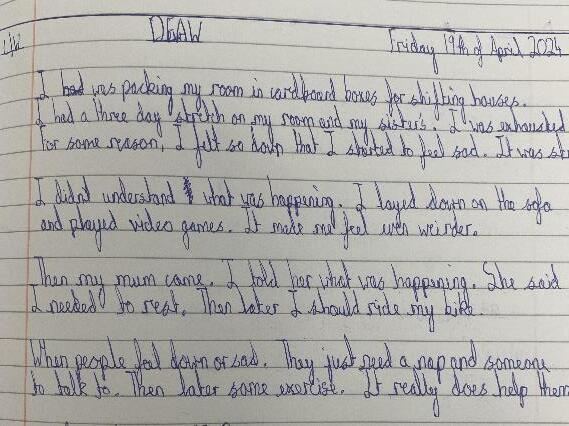 DEAW
Friday 19th of April 2024
I was packing my room in cardboard boxes for shifting houses.
I had a three day stretch on my room and my sister's. I was exhausted
For some reason, I felt so down that I started to feel sad. It was
I didn't understand what was happening. I layed down on the sofa
and played video games. It made me feel even weirder.
Then my mum came. I told her what was happening. She said
I needed to rest. Then later I should ride my bike.
When people feel down or sad. They just need a nap and someone
to talk to. Then later some exercise. It really does help them